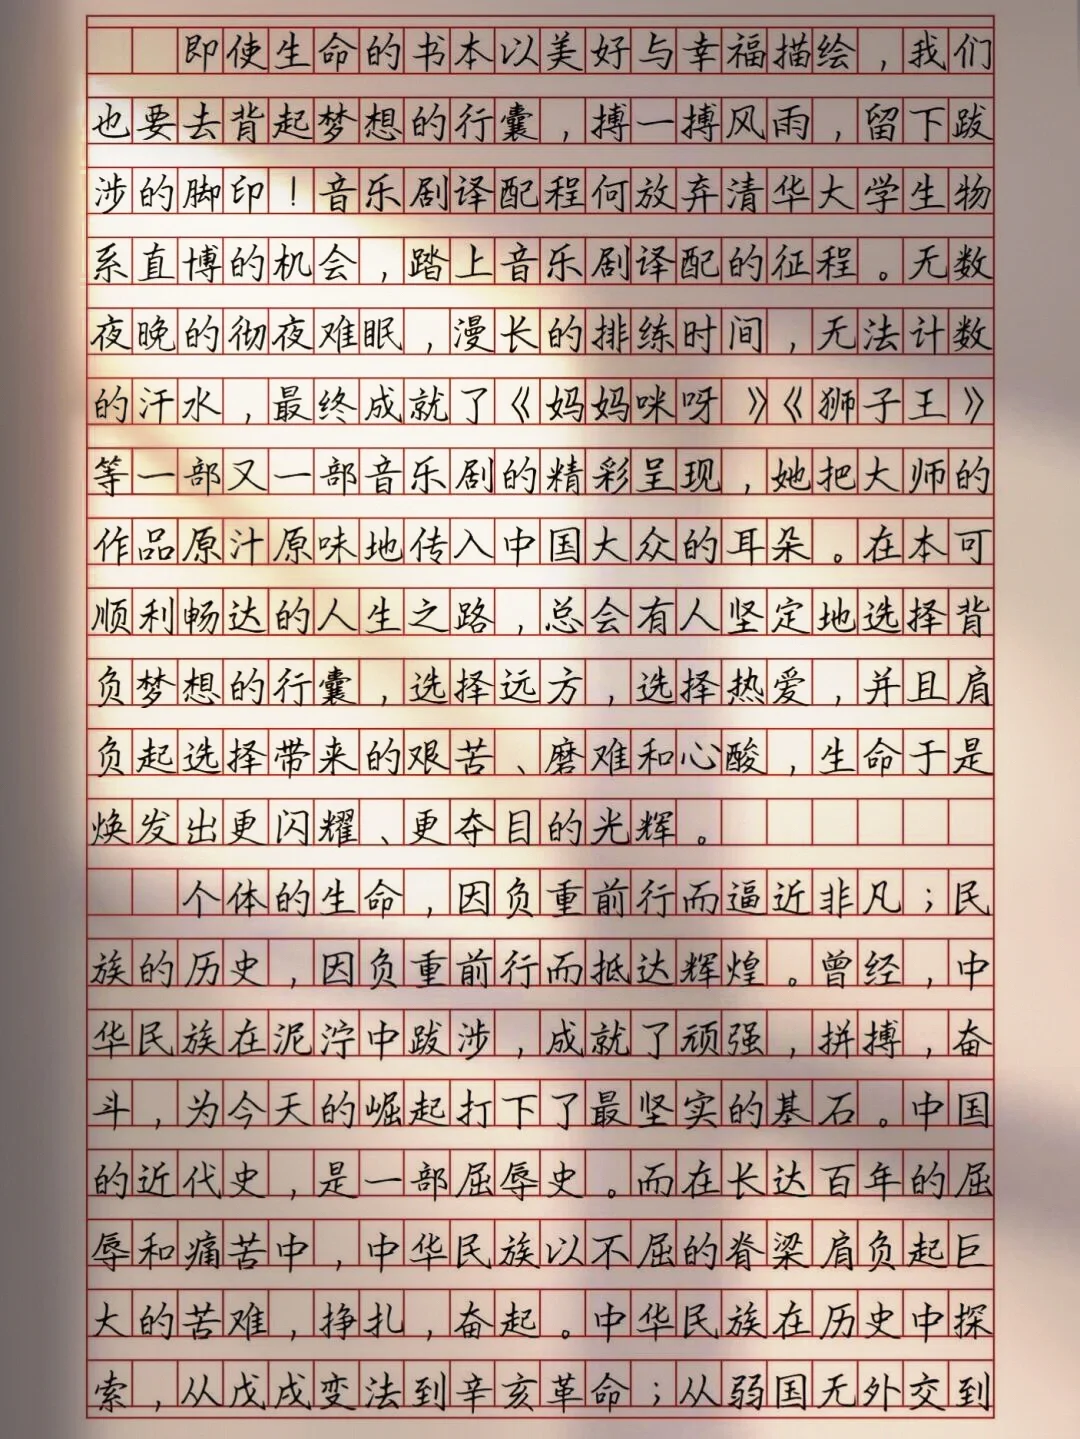 即使生命的书本以美好与幸福描绘，我们
也要去背起梦想的行囊，搏一搏风雨，留下跋
涉的脚印！音乐剧译配程何放弃清华大学生物
系直博的机会，踏上音乐剧译配的征程。无数
夜晚的彻夜难眠，漫长的排练时间，无法计数
的汗水，最终成就了《妈妈咪呀》《狮子王》
等一部又一部音乐剧的精彩呈现，她把大师的
作品原汁原味地传入中国大众的耳朵。在本可
顺利畅达的人生之路，总会有人坚定地选择背
负梦想的行囊，选择远方，选择热爱，并且肩
负起选择带来的艰苦、磨难和心酸，生命于是
焕发出更闪耀、更夺目的光辉。
个体的生命，因负重前行而逼近非凡；民
族的历史，因负重前行而抵达辉煌。曾经，中
华民族在泥泞中跋涉，成就了顽强，拼搏，奋
斗，为今天的崛起打下了最坚实的基石。中国
的近代史，是一部屈辱史。而在长达百年的屈
辱和痛苦中，中华民族以不屈的脊梁肩负起巨
大的苦难，挣扎，奋起。中华民族在历史中探
索，从戊戌变法到辛亥革命；从弱国无外交到